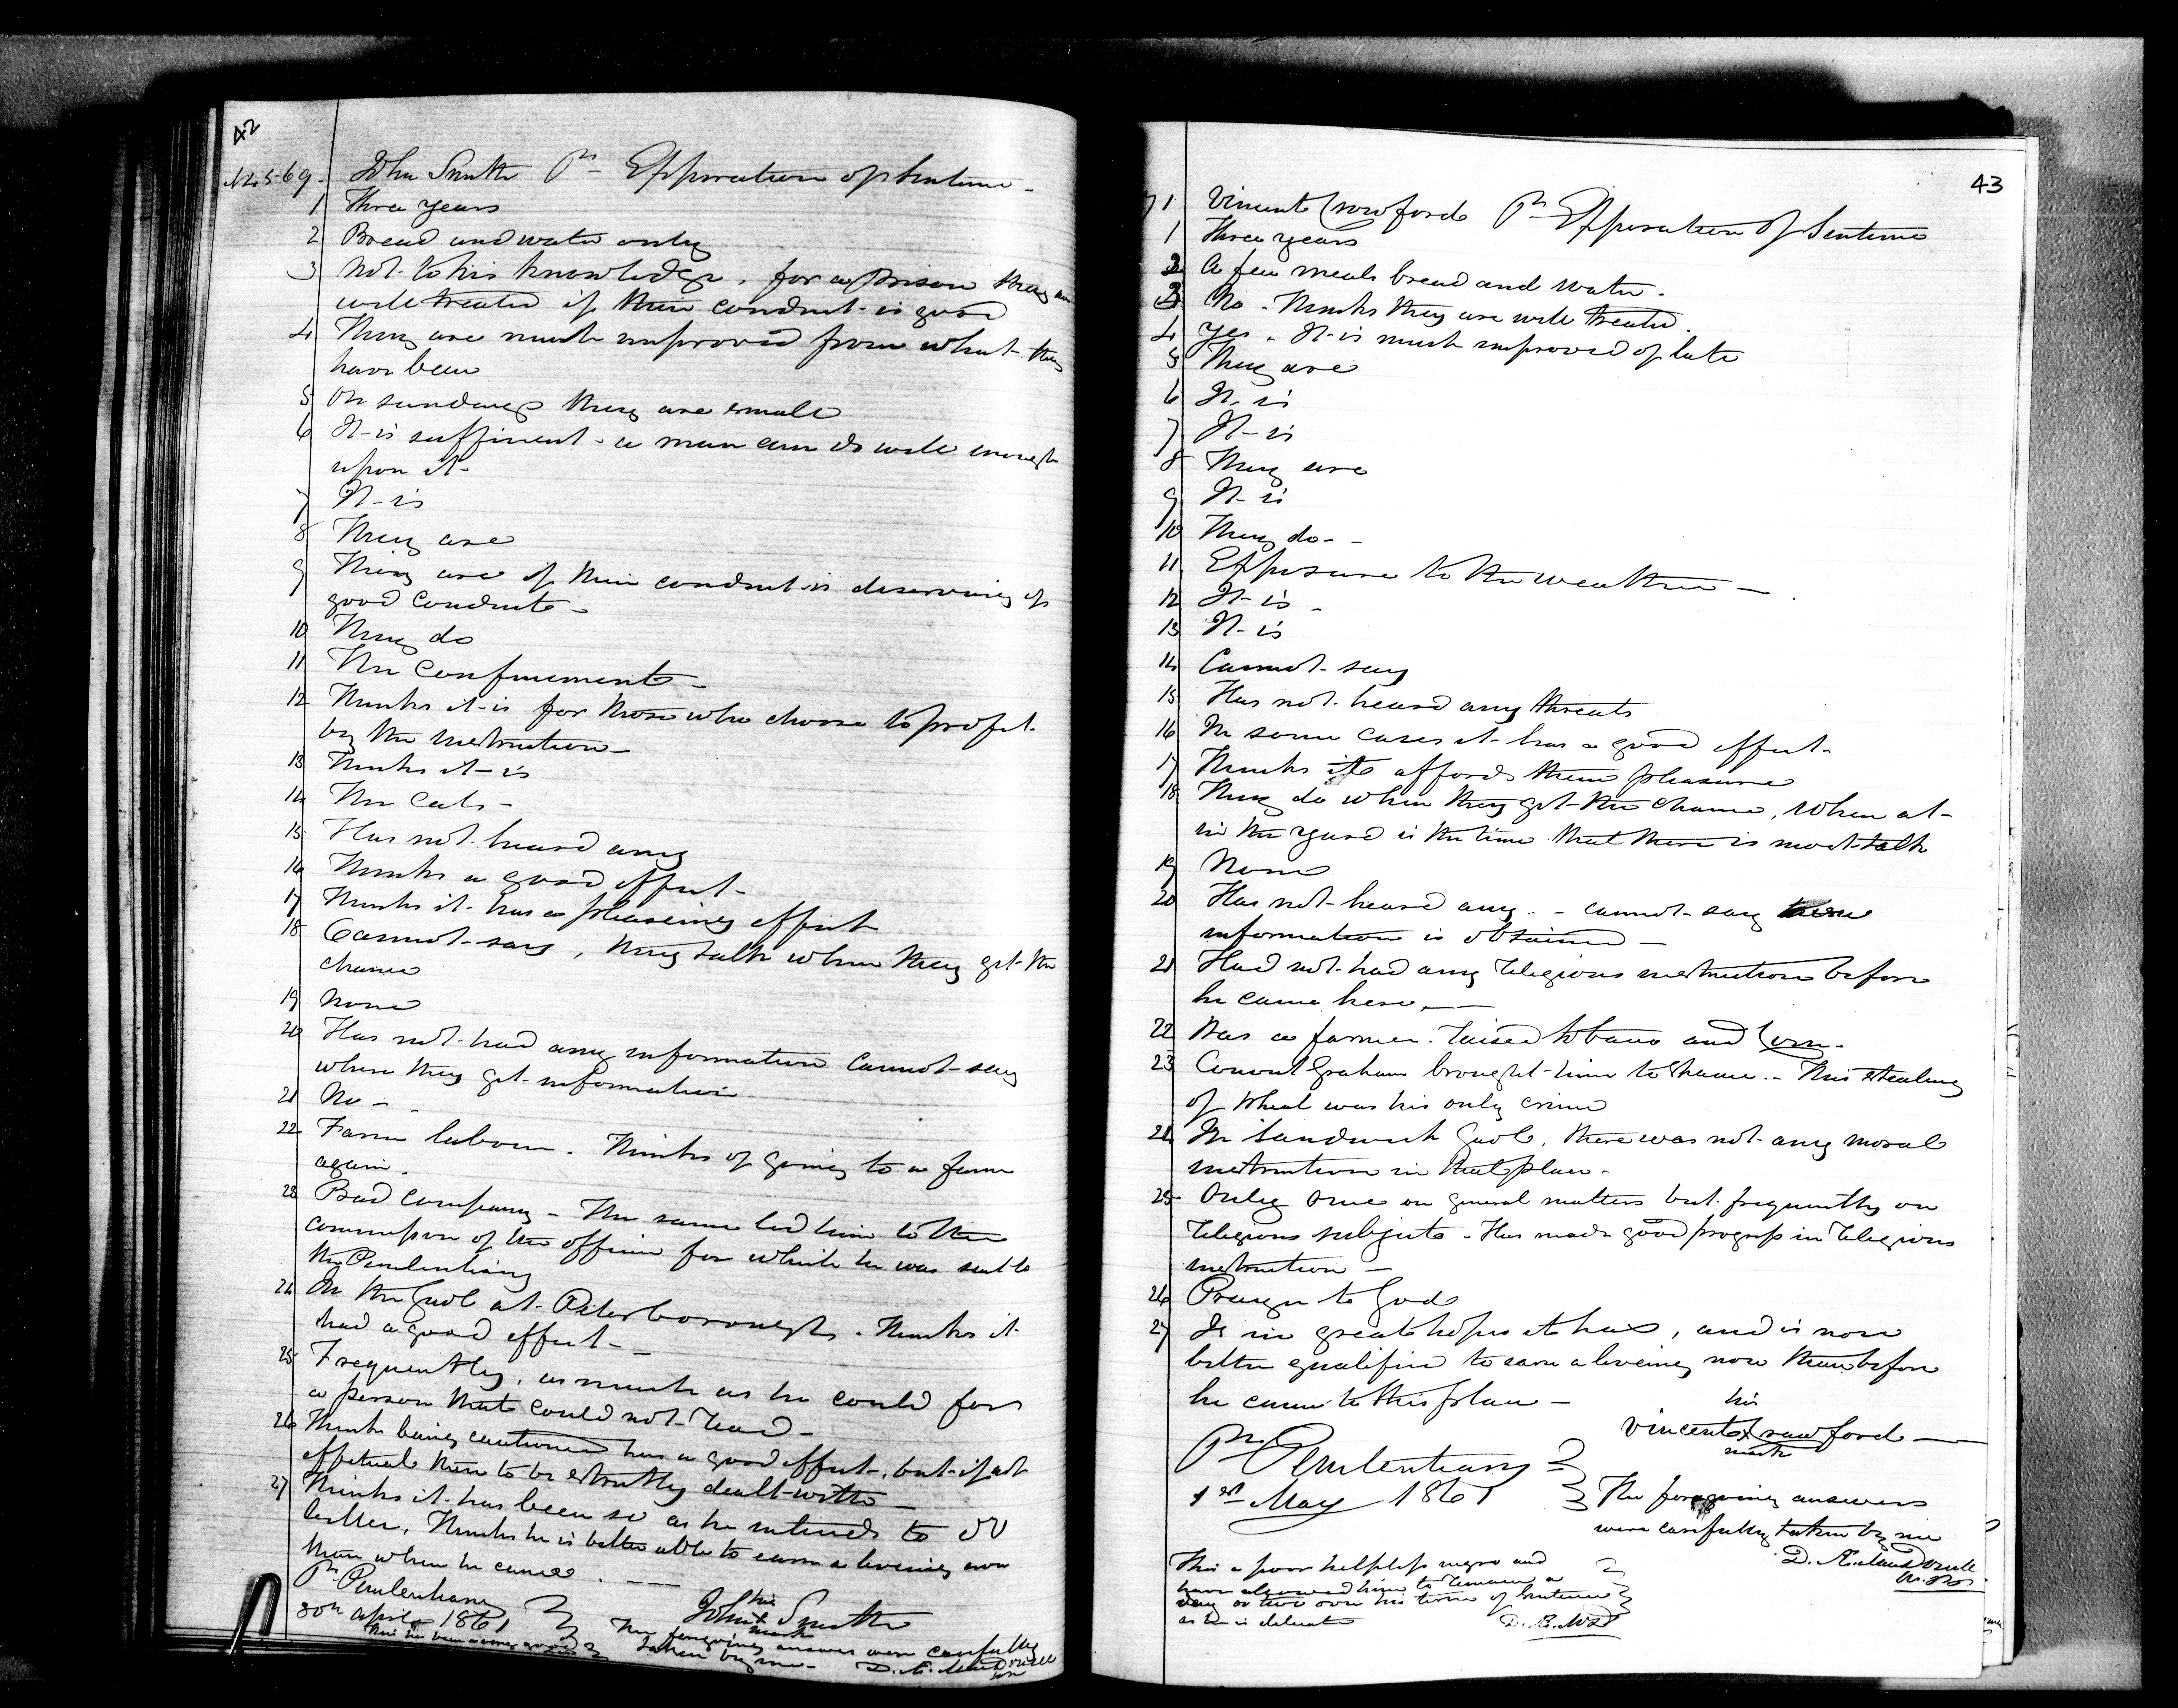 42
No. 569. John Smith Pn Expiration of Sentence -
1 Three years
2 Bread and water only
3 Not to his knowledge, for a prison they are
well treated if their conduct is good
4 They are much improved from what they
have been
5 On sundays they are small
6 It is sufficient - a man can do well enough
upon it -
7 It is
8 They are
9 They are if their conduct is deserving of
good conduct -
10 They do
11 The confinement -
12 Thinks it is for those who choose to profit
by the instruction -
13 Thinks it is
14 The Cats -
15 Has not heard any
16 Thinks a good effect -
17 Thinks it has a pleaseing effect
18 Cannot say, they talk when they get the
chance
19 None
20 Has not had any information cannot say
where they get information
21 No -
22 Farm labour. Thinks of going to a farm
again.
23 Bad company - The same led him to the
commission of the offence for which he was sent to
the Penitentiary
24 In the Gaol at Peterborough. Thinks it
had a good effect -
25 Frequently, as much as he could for
a person that could not read -
26 Thinks being cautioned has a good effect, but if not
effectual then to be strictly dealt with -
27 Thinks it has been so as he intends to do
better. Thinks he is better able to earn a liveing now
than when he came.
Pn Penitentiary
30th April 1861
his
John X Smith
mark
The foregoing answers were carefully
taken by me -
D. Æ. MacDonell
43
71 Vincent Crawford Pn Expiration of Sentence
1 Three years
2 A few meals bread and water -
3 No. Thinks they are well treated.
4 Yes. It is much improved of late
5 They are
6 It is
7 It is
8 They are
9 It is
10 They do -
11 Exposure to the weather -
12 It is -
13 It is
14 Cannot say
15 Has not heard any threats
16 In some cases it has a good effect -
17 Thinks it affords them pleasure
18 They do when they get the chance, when at
in the yard is the time that there is most talk
19 None
20 Has not heard any. - cannot say
information is obtained -
21 Had not had any religious instruction before
he came here, -
22 Was a farmer. raised tobacco and Corn -
23 Graham brought him to shame. - This stealing
of wheat was his only crime
24 In Sandwich Gaol, there was not any moral
instruction in that place -
25 Only once on general matters but frequently on
religious subjects - Has made good progress in religious
instruction -
26 Prayer to God
27 Is in great hopes it has, and is now
better qualified to earn a liveing now than before
he came to this place -
his
Vincent X Crawford -
mark
Pn Penitentiary
1st May 1861
The foregoing answers
were carefully taken by me
D. Æ. MacDonell
This a poor helpless negro and
have allowed him to remain a
day or two over his time of Sentence
as he is delicate
D. Æ. McD